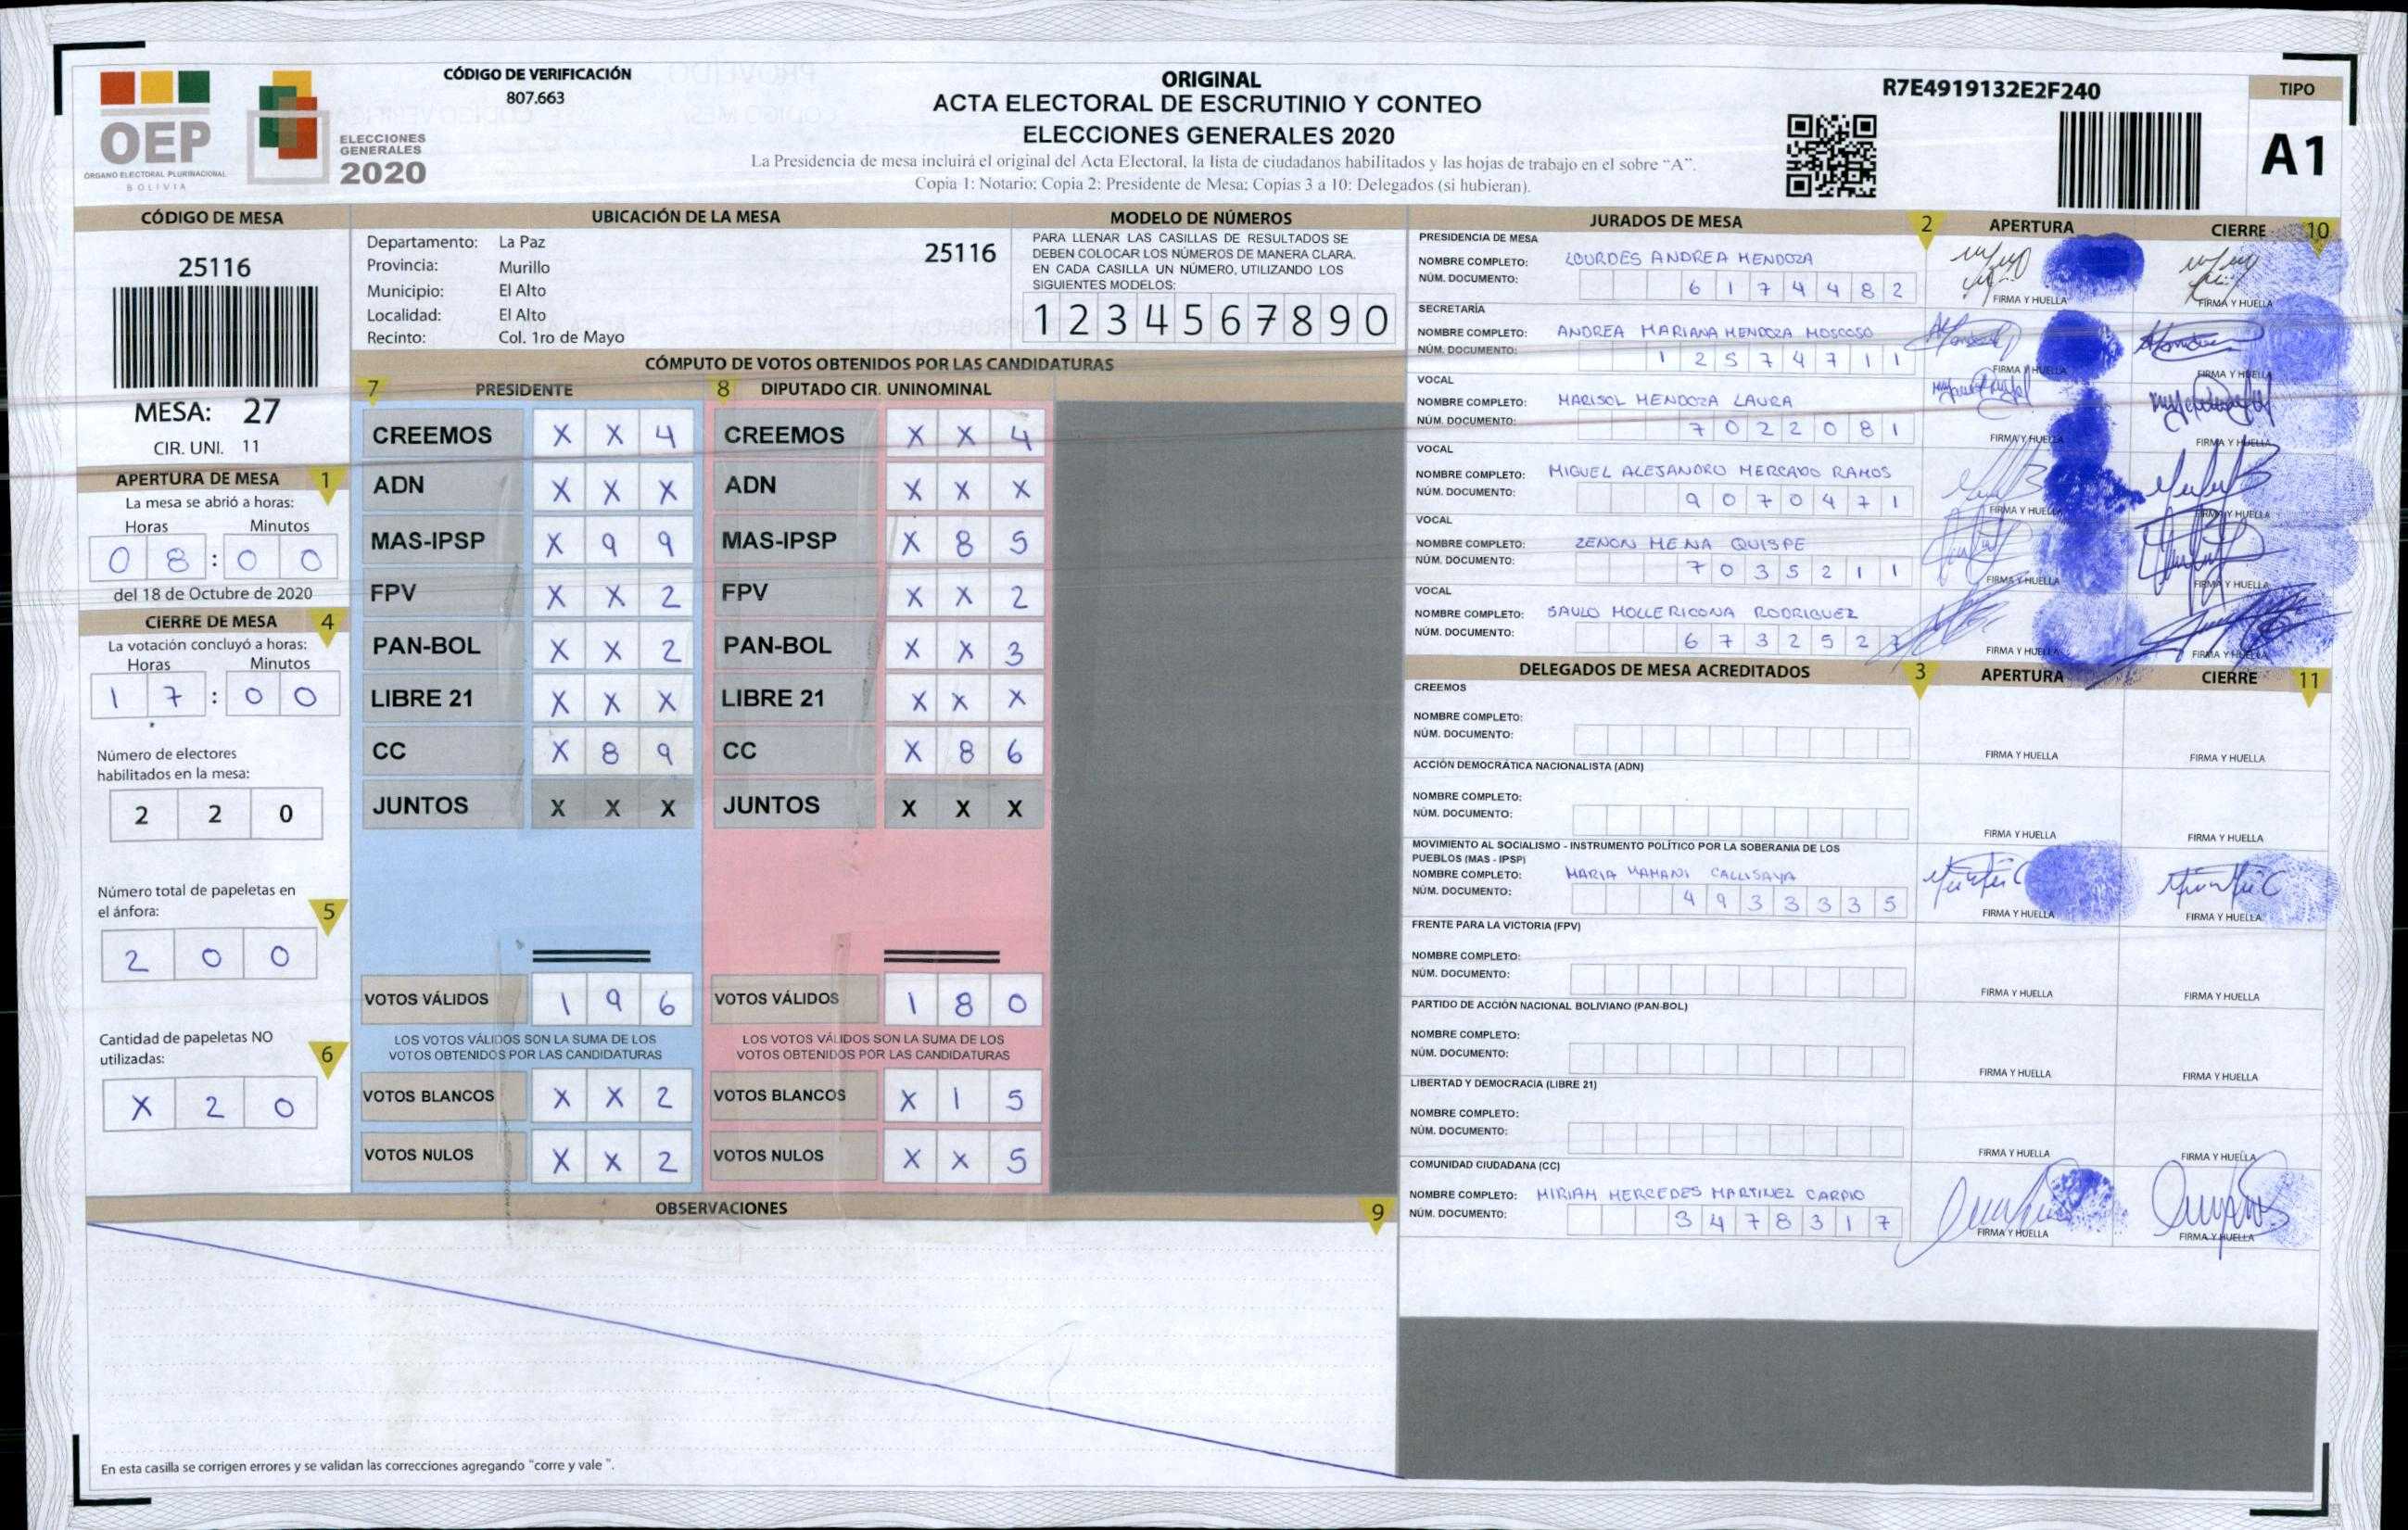 OEP
ÓRGANO ELECTORAL PLURINACIONAL
BOLIVIA
ELECCIONES
GENERALES
2020
CÓDIGO DE VERIFICACIÓN
807.663
ORIGINAL
ACTA ELECTORAL DE ESCRUTINIO Y CONTEO
ELECCIONES GENERALES 2020
La Presidencia de mesa incluirá el original del Acta Electoral, la lista de ciudadanos habilitados y las hojas de trabajo en el sobre “A”.
Copia 1: Notario; Copia 2: Presidente de Mesa; Copias 3 a 10: Delegados (si hubieran).
R7E4919132E2F240
TIPO
A1
CÓDIGO DE MESA
25116
MESA: 27
CIR. UNI. 11
APERTURA DE MESA 1
La mesa se abrió a horas:
Horas Minutos
0 8 : 0 0
del 18 de Octubre de 2020
CIERRE DE MESA 4
La votación concluyó a horas:
Horas Minutos
1 7 : 0 0
Número de electores
habilitados en la mesa:
2 2 0
Número total de papeletas en
el ánfora: 5
2 0 0
Cantidad de papeletas NO
utilizadas: 6
X 2 0
UBICACIÓN DE LA MESA
Departamento: La Paz 25116
Provincia: Murillo
Municipio: El Alto
Localidad: El Alto
Recinto: Col. 1ro de Mayo
MODELO DE NÚMEROS
PARA LLENAR LAS CASILLAS DE RESULTADOS SE
DEBEN COLOCAR LOS NÚMEROS DE MANERA CLARA.
EN CADA CASILLA UN NÚMERO, UTILIZANDO LOS
SIGUIENTES MODELOS:
1 2 3 4 5 6 7 8 9 0
CÓMPUTO DE VOTOS OBTENIDOS POR LAS CANDIDATURAS
7 PRESIDENTE 8 DIPUTADO CIR. UNINOMINAL
CREEMOS X X 4 CREEMOS X X 4
ADN X X X ADN X X X
MAS-IPSP X 9 9 MAS-IPSP X 8 5
FPV X X 2 FPV X X 2
PAN-BOL X X 2 PAN-BOL X X 3
LIBRE 21 X X X LIBRE 21 X X X
CC X 8 9 CC X 8 6
JUNTOS X X X JUNTOS X X X
VOTOS VÁLIDOS 1 9 6 VOTOS VÁLIDOS 1 8 0
LOS VOTOS VÁLIDOS SON LA SUMA DE LOS LOS VOTOS VÁLIDOS SON LA SUMA DE LOS
VOTOS OBTENIDOS POR LAS CANDIDATURAS VOTOS OBTENIDOS POR LAS CANDIDATURAS
VOTOS BLANCOS X X 2 VOTOS BLANCOS X 1 5
VOTOS NULOS X X 2 VOTOS NULOS X X 5
OBSERVACIONES 9
En esta casilla se corrigen errores y se validan las correcciones agregando “corre y vale ”.
JURADOS DE MESA 2 APERTURA CIERRE 10
PRESIDENCIA DE MESA
NOMBRE COMPLETO: LOURDES ANDREA MENDOZA
NÚM. DOCUMENTO: 6 1 7 4 4 8 2
FIRMA Y HUELLA FIRMA Y HUELLA
SECRETARÍA
NOMBRE COMPLETO: ANDREA MARIANA MENDOZA MOSCOSO
NÚM. DOCUMENTO: 1 2 5 7 4 7 1 1
FIRMA Y HUELLA FIRMA Y HUELLA
VOCAL
NOMBRE COMPLETO: MARISOL MENDOZA LAURA
NÚM. DOCUMENTO: 7 0 2 2 0 8 1
FIRMA Y HUELLA FIRMA Y HUELLA
VOCAL
NOMBRE COMPLETO: MIGUEL ALEJANDRO MERCADO RAMOS
NÚM. DOCUMENTO: 9 0 7 0 4 7 1
FIRMA Y HUELLA FIRMA Y HUELLA
VOCAL
NOMBRE COMPLETO: ZENON MENA QUISPE
NÚM. DOCUMENTO: 7 0 3 5 2 1 1
FIRMA Y HUELLA FIRMA Y HUELLA
VOCAL
NOMBRE COMPLETO: SAULO MOLLERICONA RODRIGUEZ
NÚM. DOCUMENTO: 6 7 3 2 5 2
FIRMA Y HUELLA FIRMA Y HUELLA
DELEGADOS DE MESA ACREDITADOS 3 APERTURA CIERRE 11
CREEMOS
NOMBRE COMPLETO:
NÚM. DOCUMENTO:
FIRMA Y HUELLA FIRMA Y HUELLA
ACCIÓN DEMOCRÁTICA NACIONALISTA (ADN)
NOMBRE COMPLETO:
NÚM. DOCUMENTO:
FIRMA Y HUELLA FIRMA Y HUELLA
MOVIMIENTO AL SOCIALISMO - INSTRUMENTO POLÍTICO POR LA SOBERANIA DE LOS
PUEBLOS (MAS - IPSP)
NOMBRE COMPLETO: MARIA MAMANI CALLISAYA
NÚM. DOCUMENTO: 4 9 3 3 3 3 5
FIRMA Y HUELLA FIRMA Y HUELLA
FRENTE PARA LA VICTORIA (FPV)
NOMBRE COMPLETO:
NÚM. DOCUMENTO:
FIRMA Y HUELLA FIRMA Y HUELLA
PARTIDO DE ACCIÓN NACIONAL BOLIVIANO (PAN-BOL)
NOMBRE COMPLETO:
NÚM. DOCUMENTO:
FIRMA Y HUELLA FIRMA Y HUELLA
LIBERTAD Y DEMOCRACIA (LIBRE 21)
NOMBRE COMPLETO:
NÚM. DOCUMENTO:
FIRMA Y HUELLA FIRMA Y HUELLA
COMUNIDAD CIUDADANA (CC)
NOMBRE COMPLETO: MIRIAM MERCEDES MARTINEZ CARPIO
NÚM. DOCUMENTO: 3 4 7 8 3 1 7
FIRMA Y HUELLA FIRMA Y HUELLA